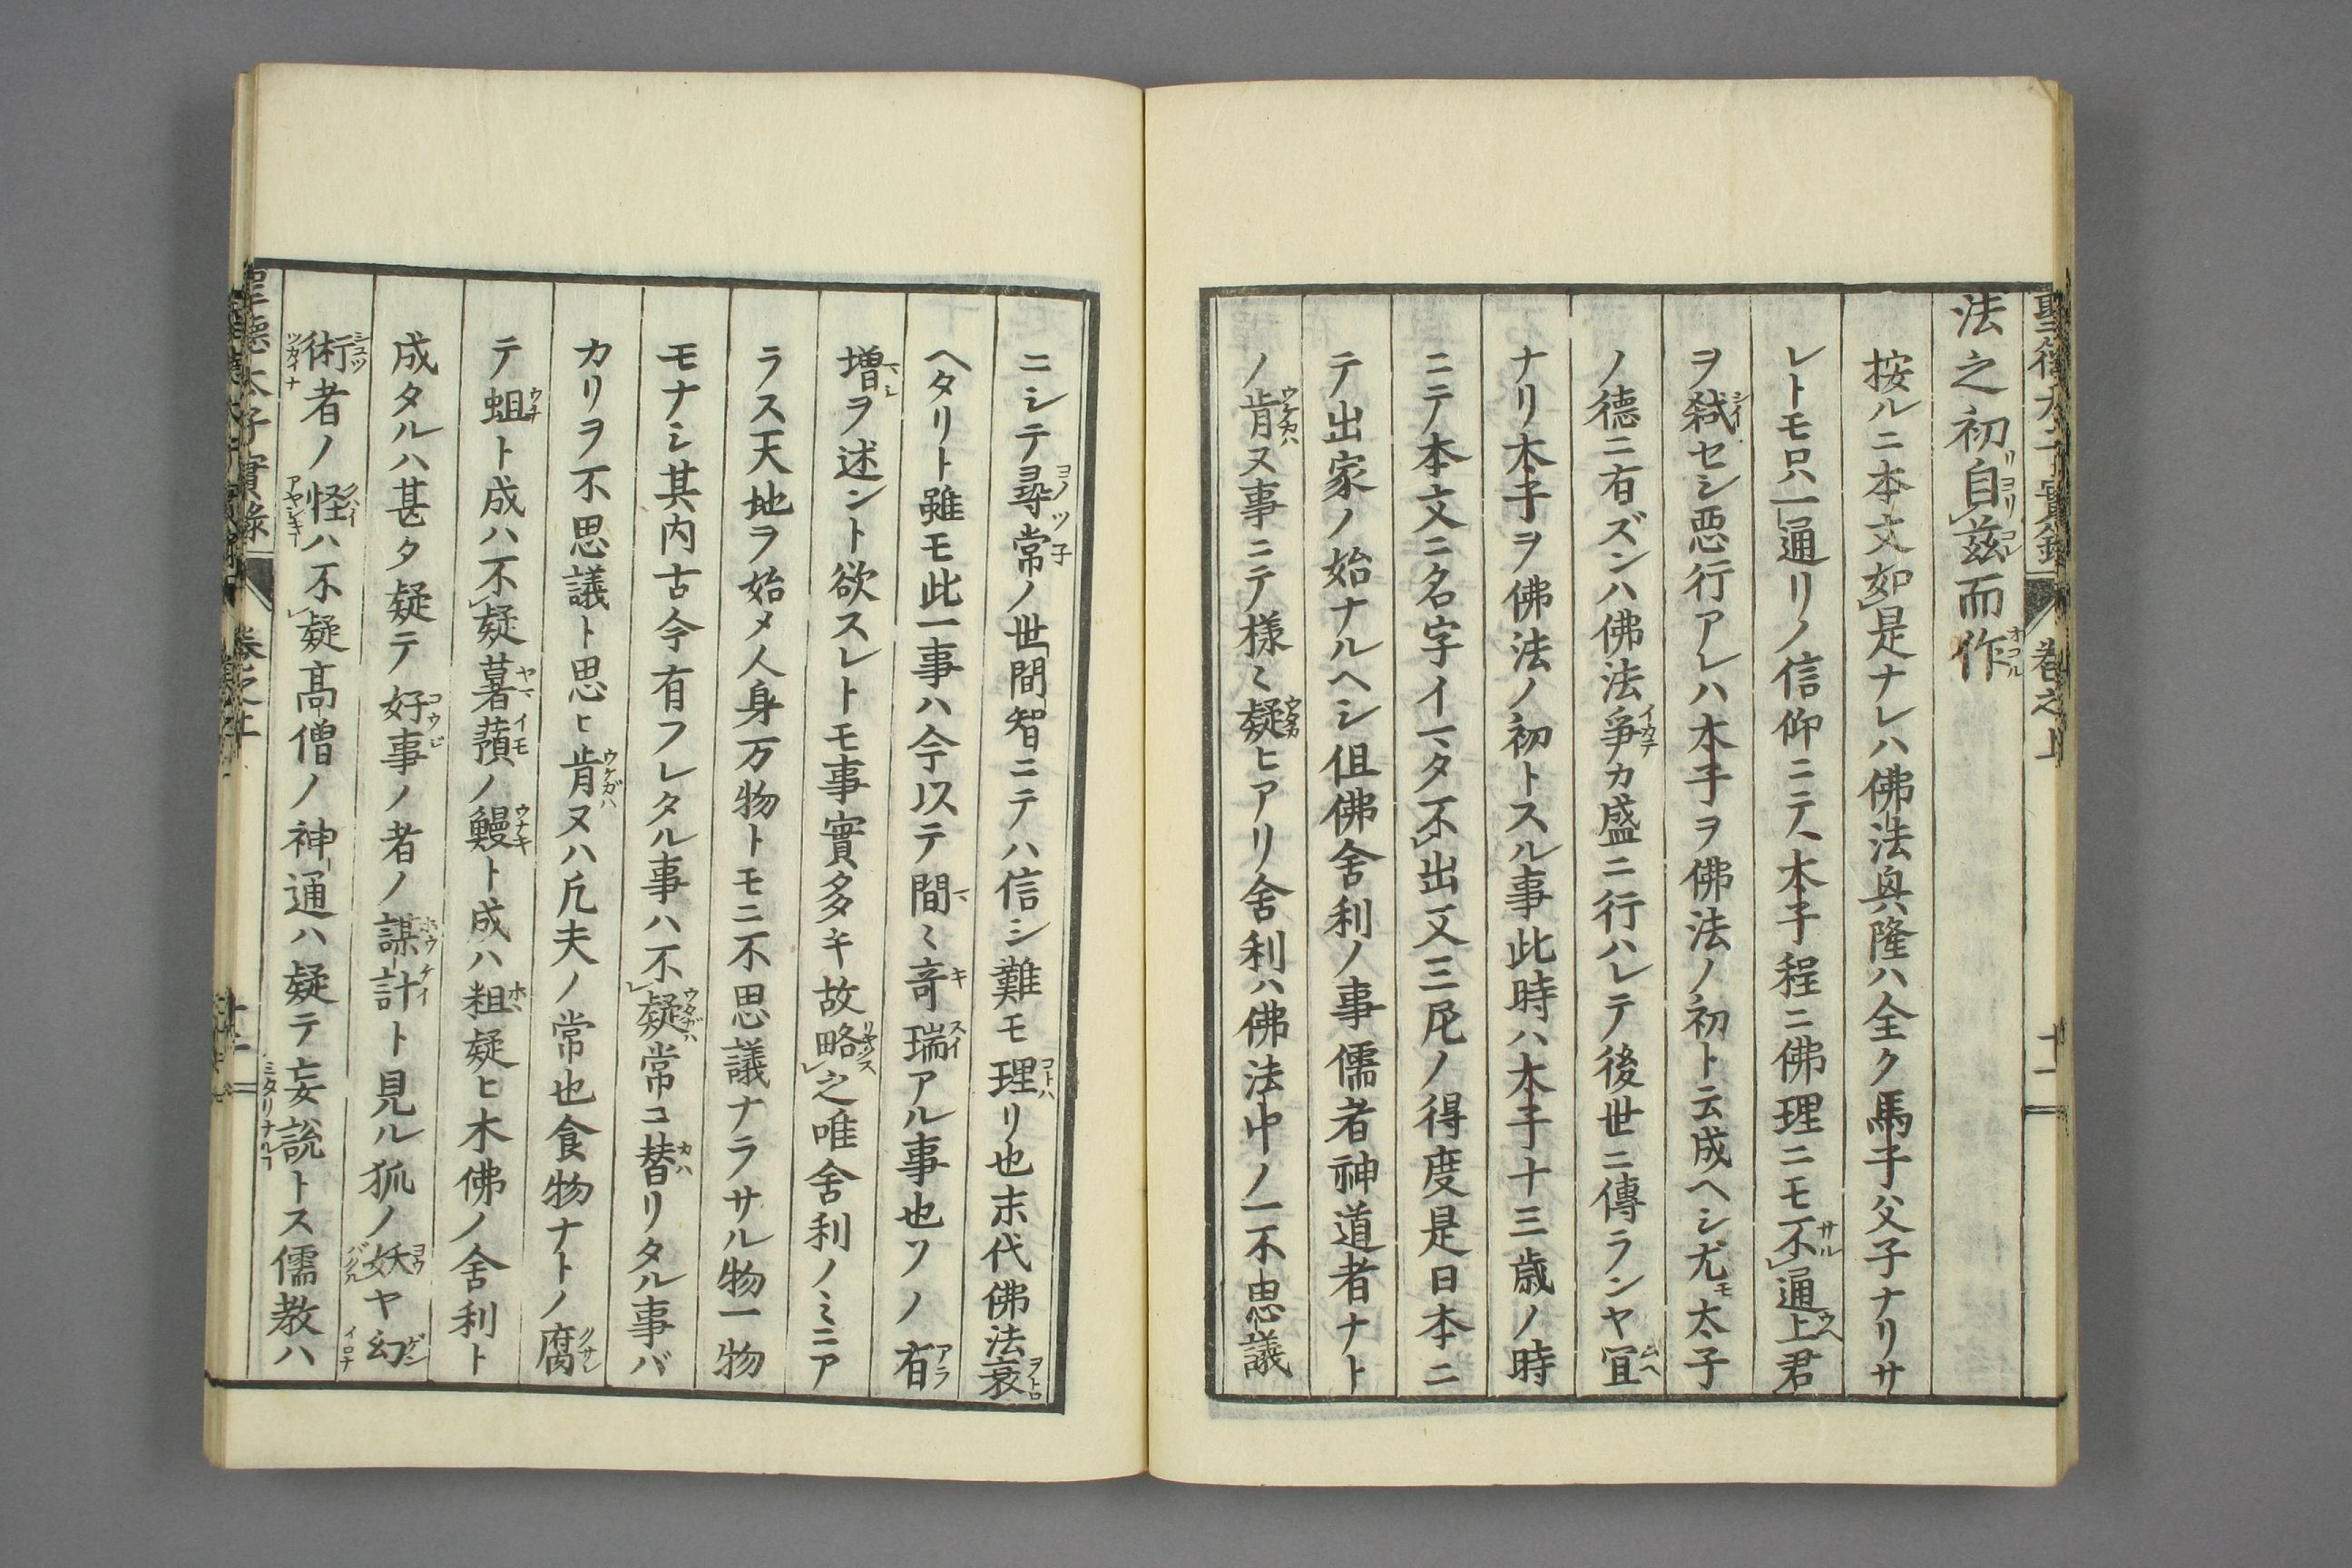 聖德太子實錄 卷之上 十一
法之初自茲而作
按ルニ本文如是ナレハ佛法興隆ハ全ク馬子父子ナリサ
レトモ只一通リノ信仰ニテ、木子程ニ佛理ニモ不通上君
ヲ弑セシ惡行アレハ木子ヲ佛法ノ初ト云成ヘシ尤モ太子
ノ德ニ有ズンハ佛法爭カ盛ニ行ハレテ後世ニ傳ランヤ冝
ナリ木子ヲ佛法ノ初トスル事此時ハ木子十三歳ノ時
ニテ本文ニ名字イマタ不出又三尼ノ得度是日本ニ
テ出家ノ始ナルヘシ但佛舍利ノ事儒者神道者ナト
ノ肯ヌ事ニテ様々疑ヒアリ舍利ハ佛法中ノ一不思議
ニシテ尋常ノ世間智ニテハ信シ難モ理リ也末代佛法衰
ヘタリト雖モ此一事ハ今以テ間々竒瑞アル事也ソノ有
増ヲ述ント欲スレトモ事實多キ故略之唯舍利ノミニア
ラス天地ヲ始メ人身万物トモニ不思議ナラサル物一物
モナシ其内古今有フレタル事ハ不疑常ニ替リタル事バ
カリヲ不思議ト思ヒ肯ヌハ凡夫ノ常也食物ナトノ腐
テ蛆ト成ハ不疑薯蕷ノ鰻ト成ハ粗疑ヒ木佛ノ舍利ト
成タルハ甚タ疑テ好事ノ者ノ謀計ト見ル狐ノ妖ヤ幻
術者ノ怪ハ不疑髙僧ノ神通ハ疑テ妄説トス儒教ハ
聖德太子實錄 卷之上